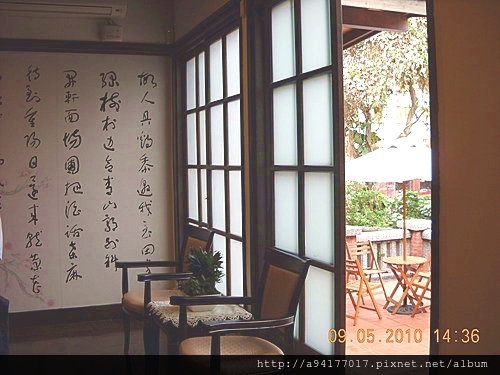 故人具鷄黍邀我至田
綠樹村边合青山郭外斜
開軒面場圃把酒話桑麻
待到重陽日還來就菊花
09.05.2010 14:36
http://a94177017.pixnet.net/album